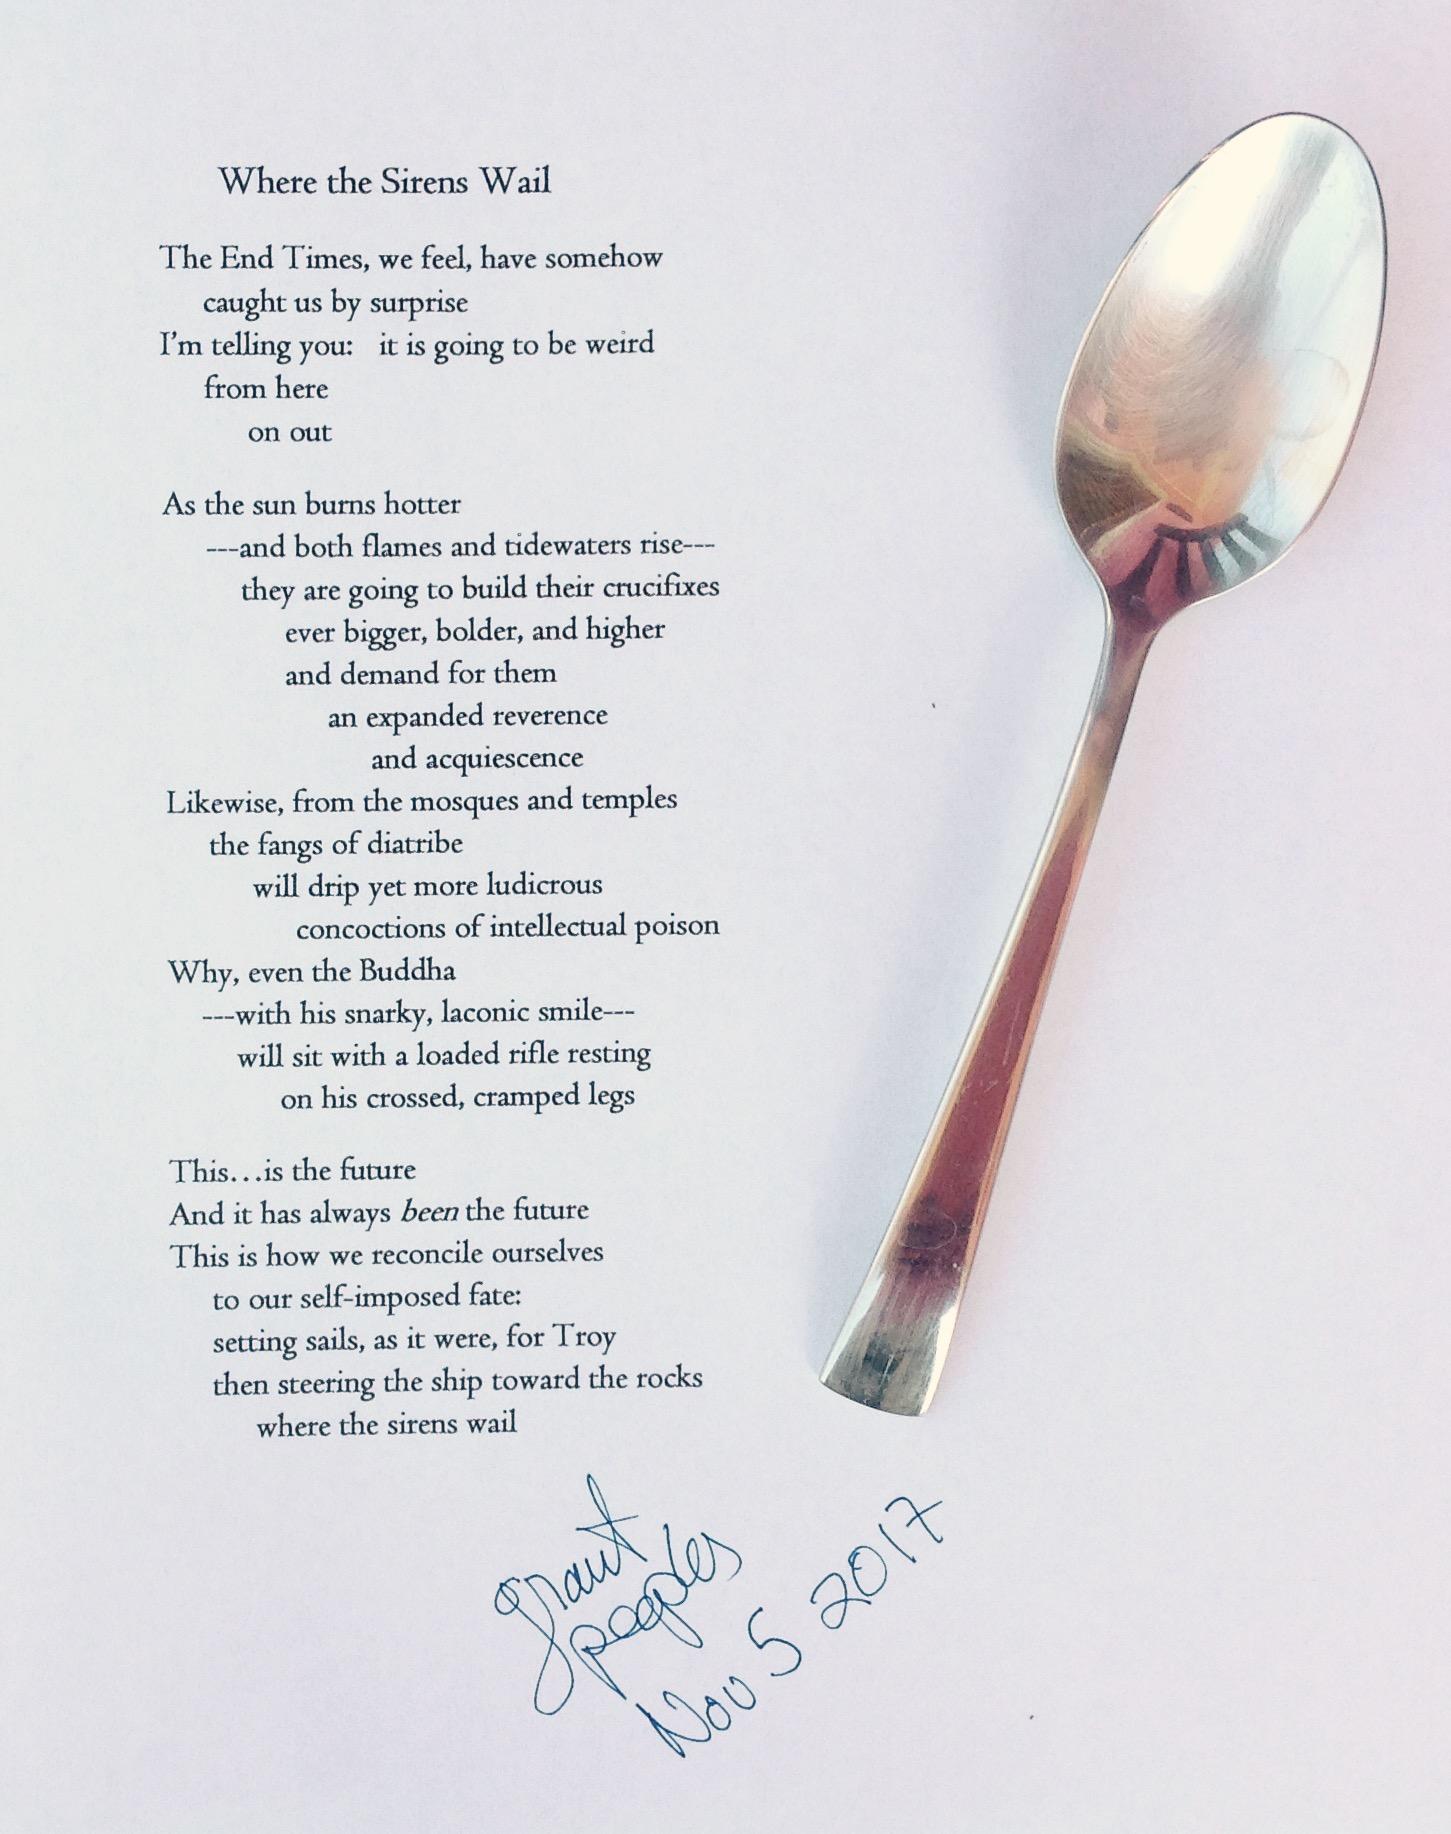 Where the Sirens Wail
The End Times, we feel, have somehow
caught us by surprise
I'm telling you: it is going to be weird
from here
on out
As the sun burns hotter
---and both flames and tidewaters rise---
they are going to build their crucifixes
ever bigger, bolder, and higher
and demand for them
an expanded reverence
and acquiescence
Likewise, from the mosques and temples
the fangs of diatribe
will drip yet more ludicrous
concoctions of intellectual poison
Why, even the Buddha
---with his snarky, laconic smile---
will sit with a loaded rifle resting
on his crossed, cramped legs
This...is the future
And it has always been the future
This is how we reconcile ourselves
to our self-imposed fate:
setting sails, as it were, for Troy
then steering the ship toward the rocks
where the sirens wail
grant
peeples
Nov 5 2017